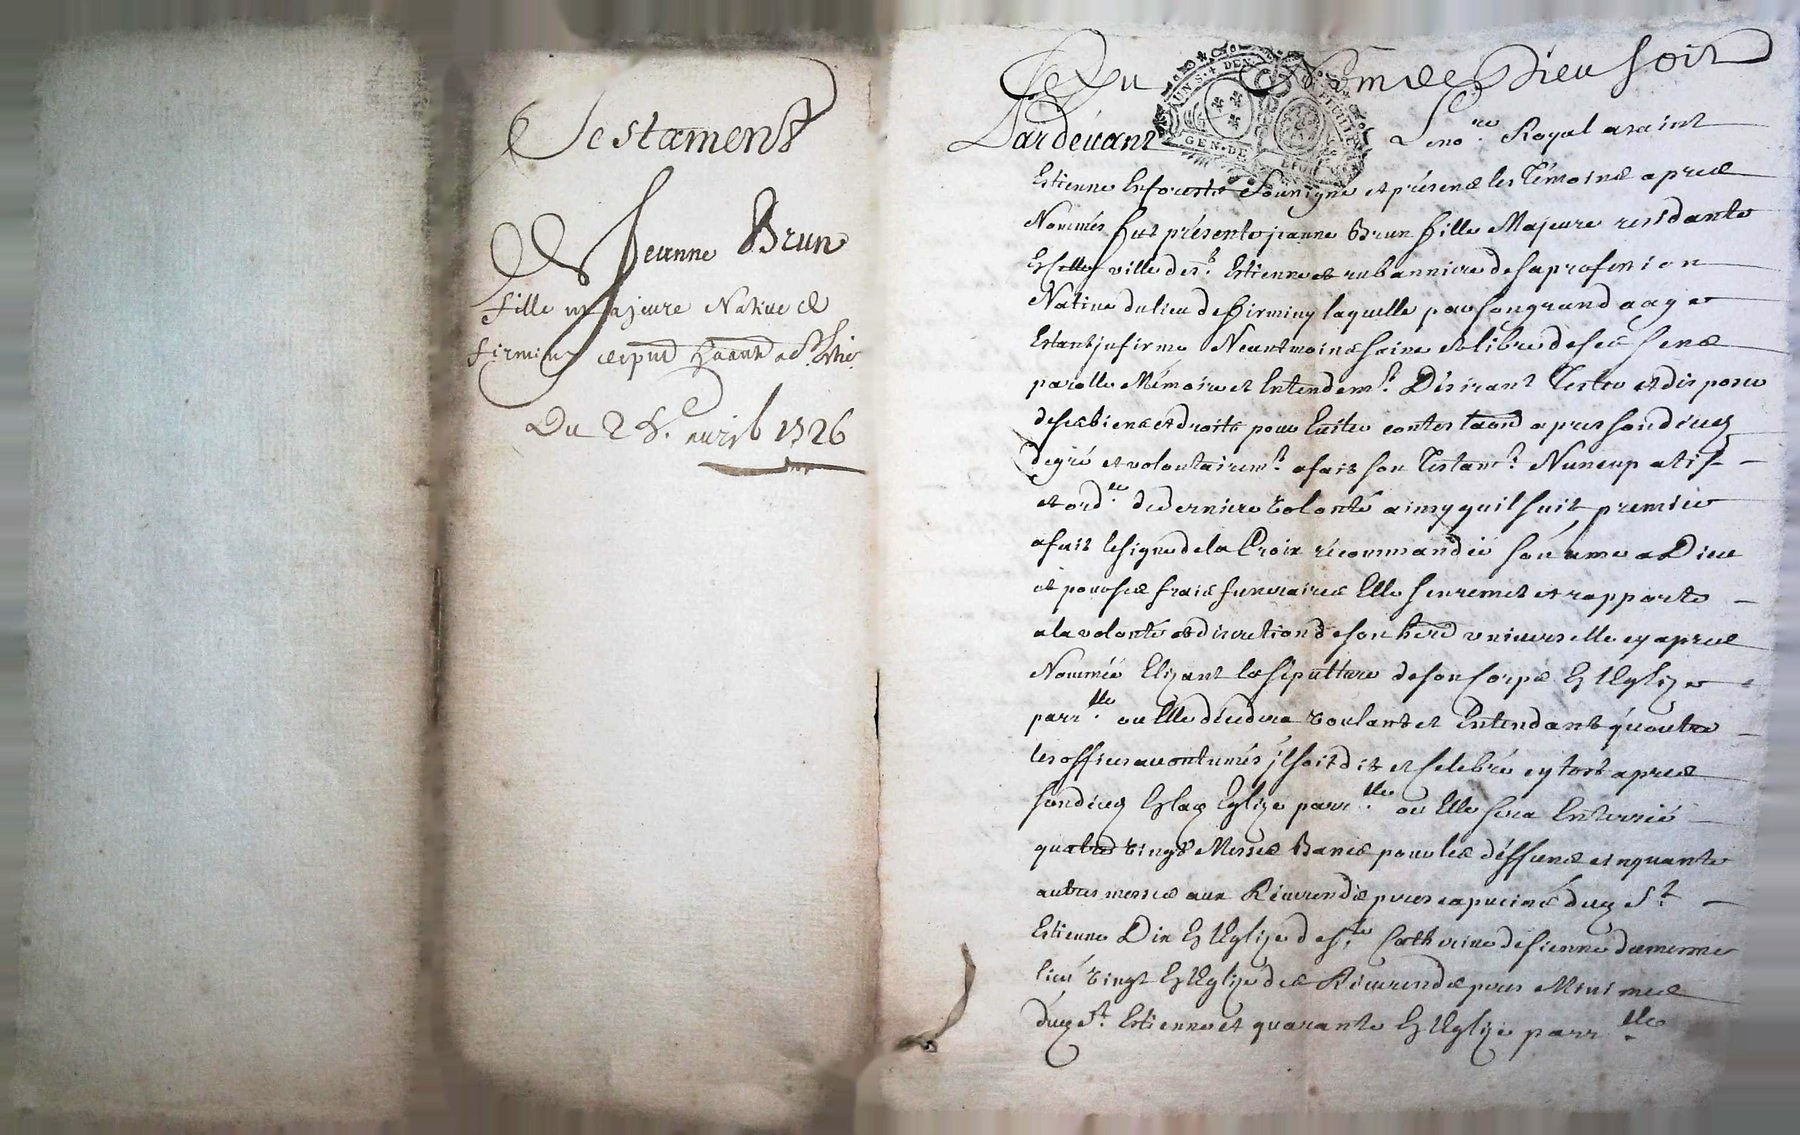 Testament
De Jeanne Brun
fille majeure Native de
firminy
Du 28e. avril 1726
Au Nom de Dieu soit
GEN. DE
Pardevant Le nore. Royal a saint
Estienne En forests Sousigné et présens les Témoins apres
Nommés fut présente jeanne Brun fille Majeure residante
En cette ville de st. Estienne et rubanniere de sa profession
Native du lieu de firminy laquelle pour son grand aage
Estant jnfirme Neantmoins saine et libre de ses sens
parolle Mémoire et Entendemt. Désirant Tester et disposer
de ses biens et droits pour Eviter contestaon apres son deces
de gré et volontairemt. a fait son Testamt. Nuncupatif
et ordce. de derniere volonté ainsy quil suit premier
a fait le signe de la Croix récommandée son ame a Dieu
et pour ses frais funeraires Elle s'en remet et rapporte
a la volonté et discretion de son herre universelle cy apres
Nommée Elizant la sépulture de son Corps En l'Eglize
parrlle. ou Elle décedera voulant et Entendant qu'outre
les offices accoutumés jl soit dit et Celebré cy tost apres
son deces En la Eglize parrlle. ou Elle sera Enterrée
quatre vingt Messes Basses pour les déffuns cinquante
autres messes aux Réverends peres capucins dud St.
Estienne Dix En l'Eglize de ste. Catherine de sienne du meme
lieu vingt En l'Eglize des Réverends peres Minimes
dud st. Estienne et quarante En l'Eglize parrlle.